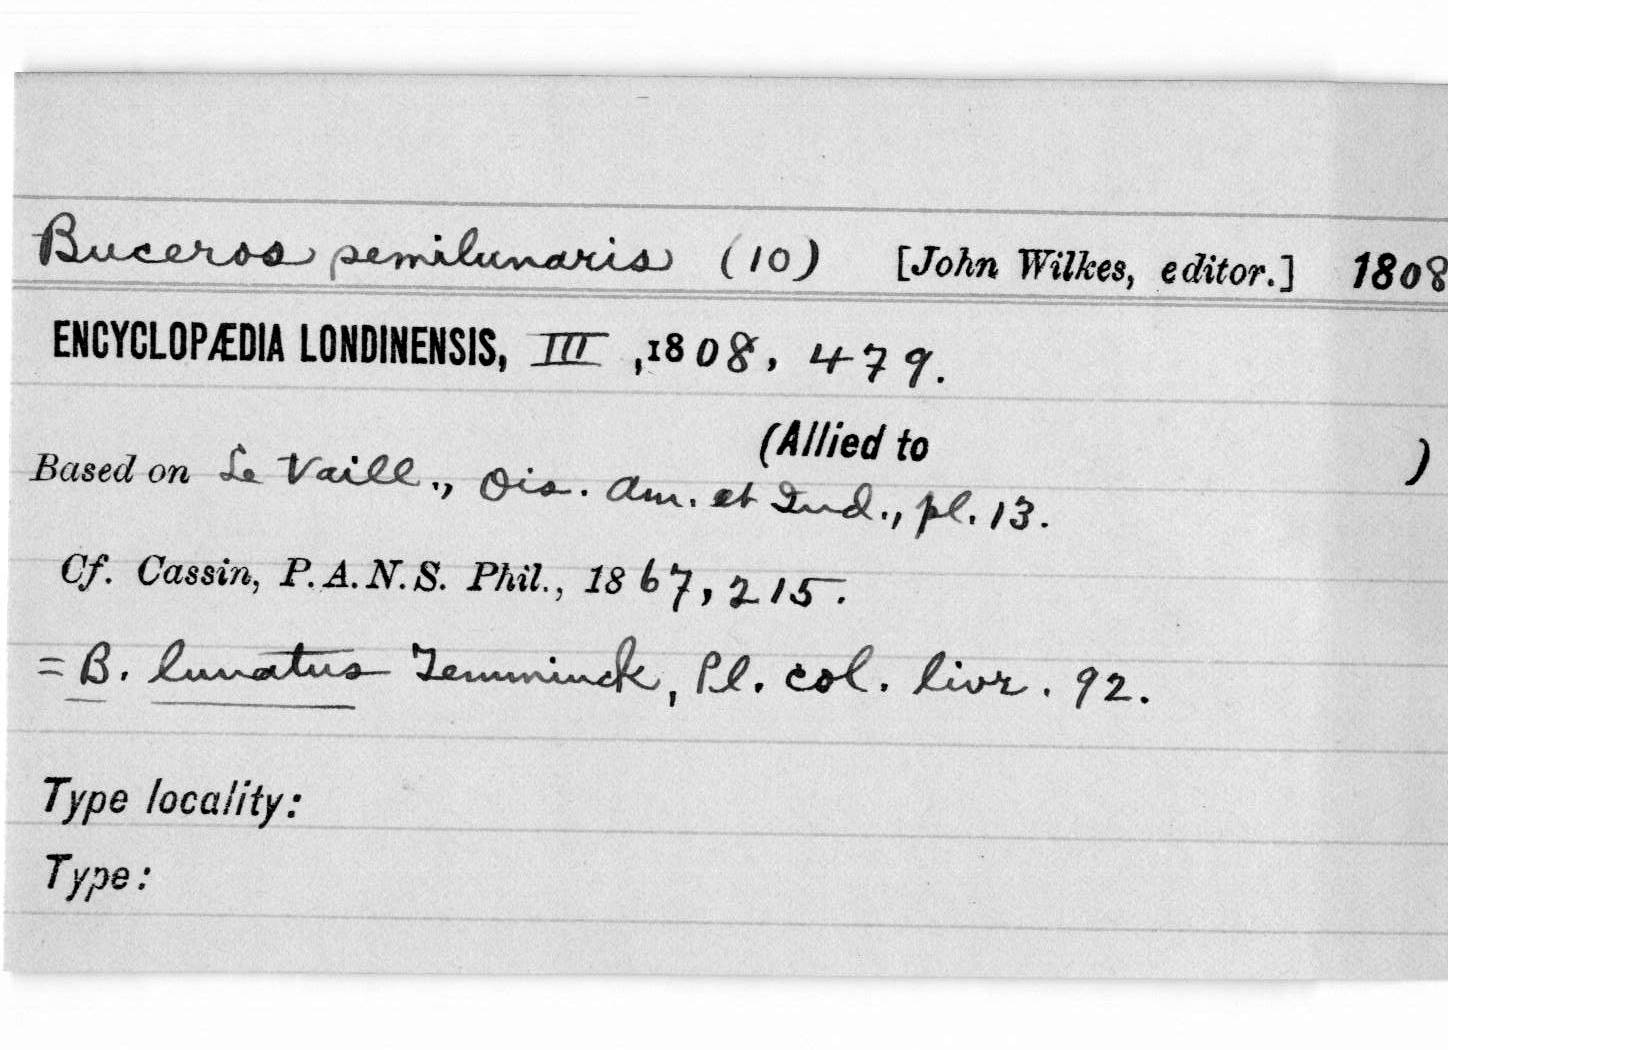 Buceros semilunaris (10) [John Wilkes, editor.] 1808
ENCYCLOPÆDIA LONDINENSIS, III, 1808, 479.
(Allied to )
Based on Le Vaill., Ois. Am. et Ind., pl. 13.
Cf. Cassin, P. A. N. S. Phil., 1867, 215.
= B. lunatus Temminck, Pl. col. livr. 92.
Type locality:
Type: